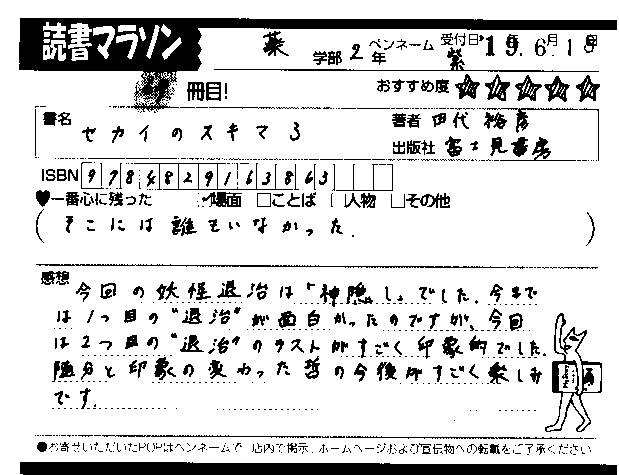 読書マラソン
薬 学部 2年 ペンネーム 紫 受付日 '19年 6月 18日
冊目!
おすすめ度 ☆☆☆☆☆
書名 セカイのスキマ 3
著者 田代 裕彦
出版社 富士見書房
ISBN 9784829163863
♥一番心に残った ☑場面 □ことば □人物 □その他
(そこには誰もいなかった.)
感想 今回の妖怪退治は「神隠し」でした. 今まで
は1つ目の"退治"が面白かったのですが、今回
は2つ目の"退治"のラストがすごく印象的でした.
随分と印象の変わった哲の今後がすごく楽しみ
です.
●お寄せいただいたPOPはペンネームで、店内で掲示、ホームページおよび宣伝物への転載をご了承ください